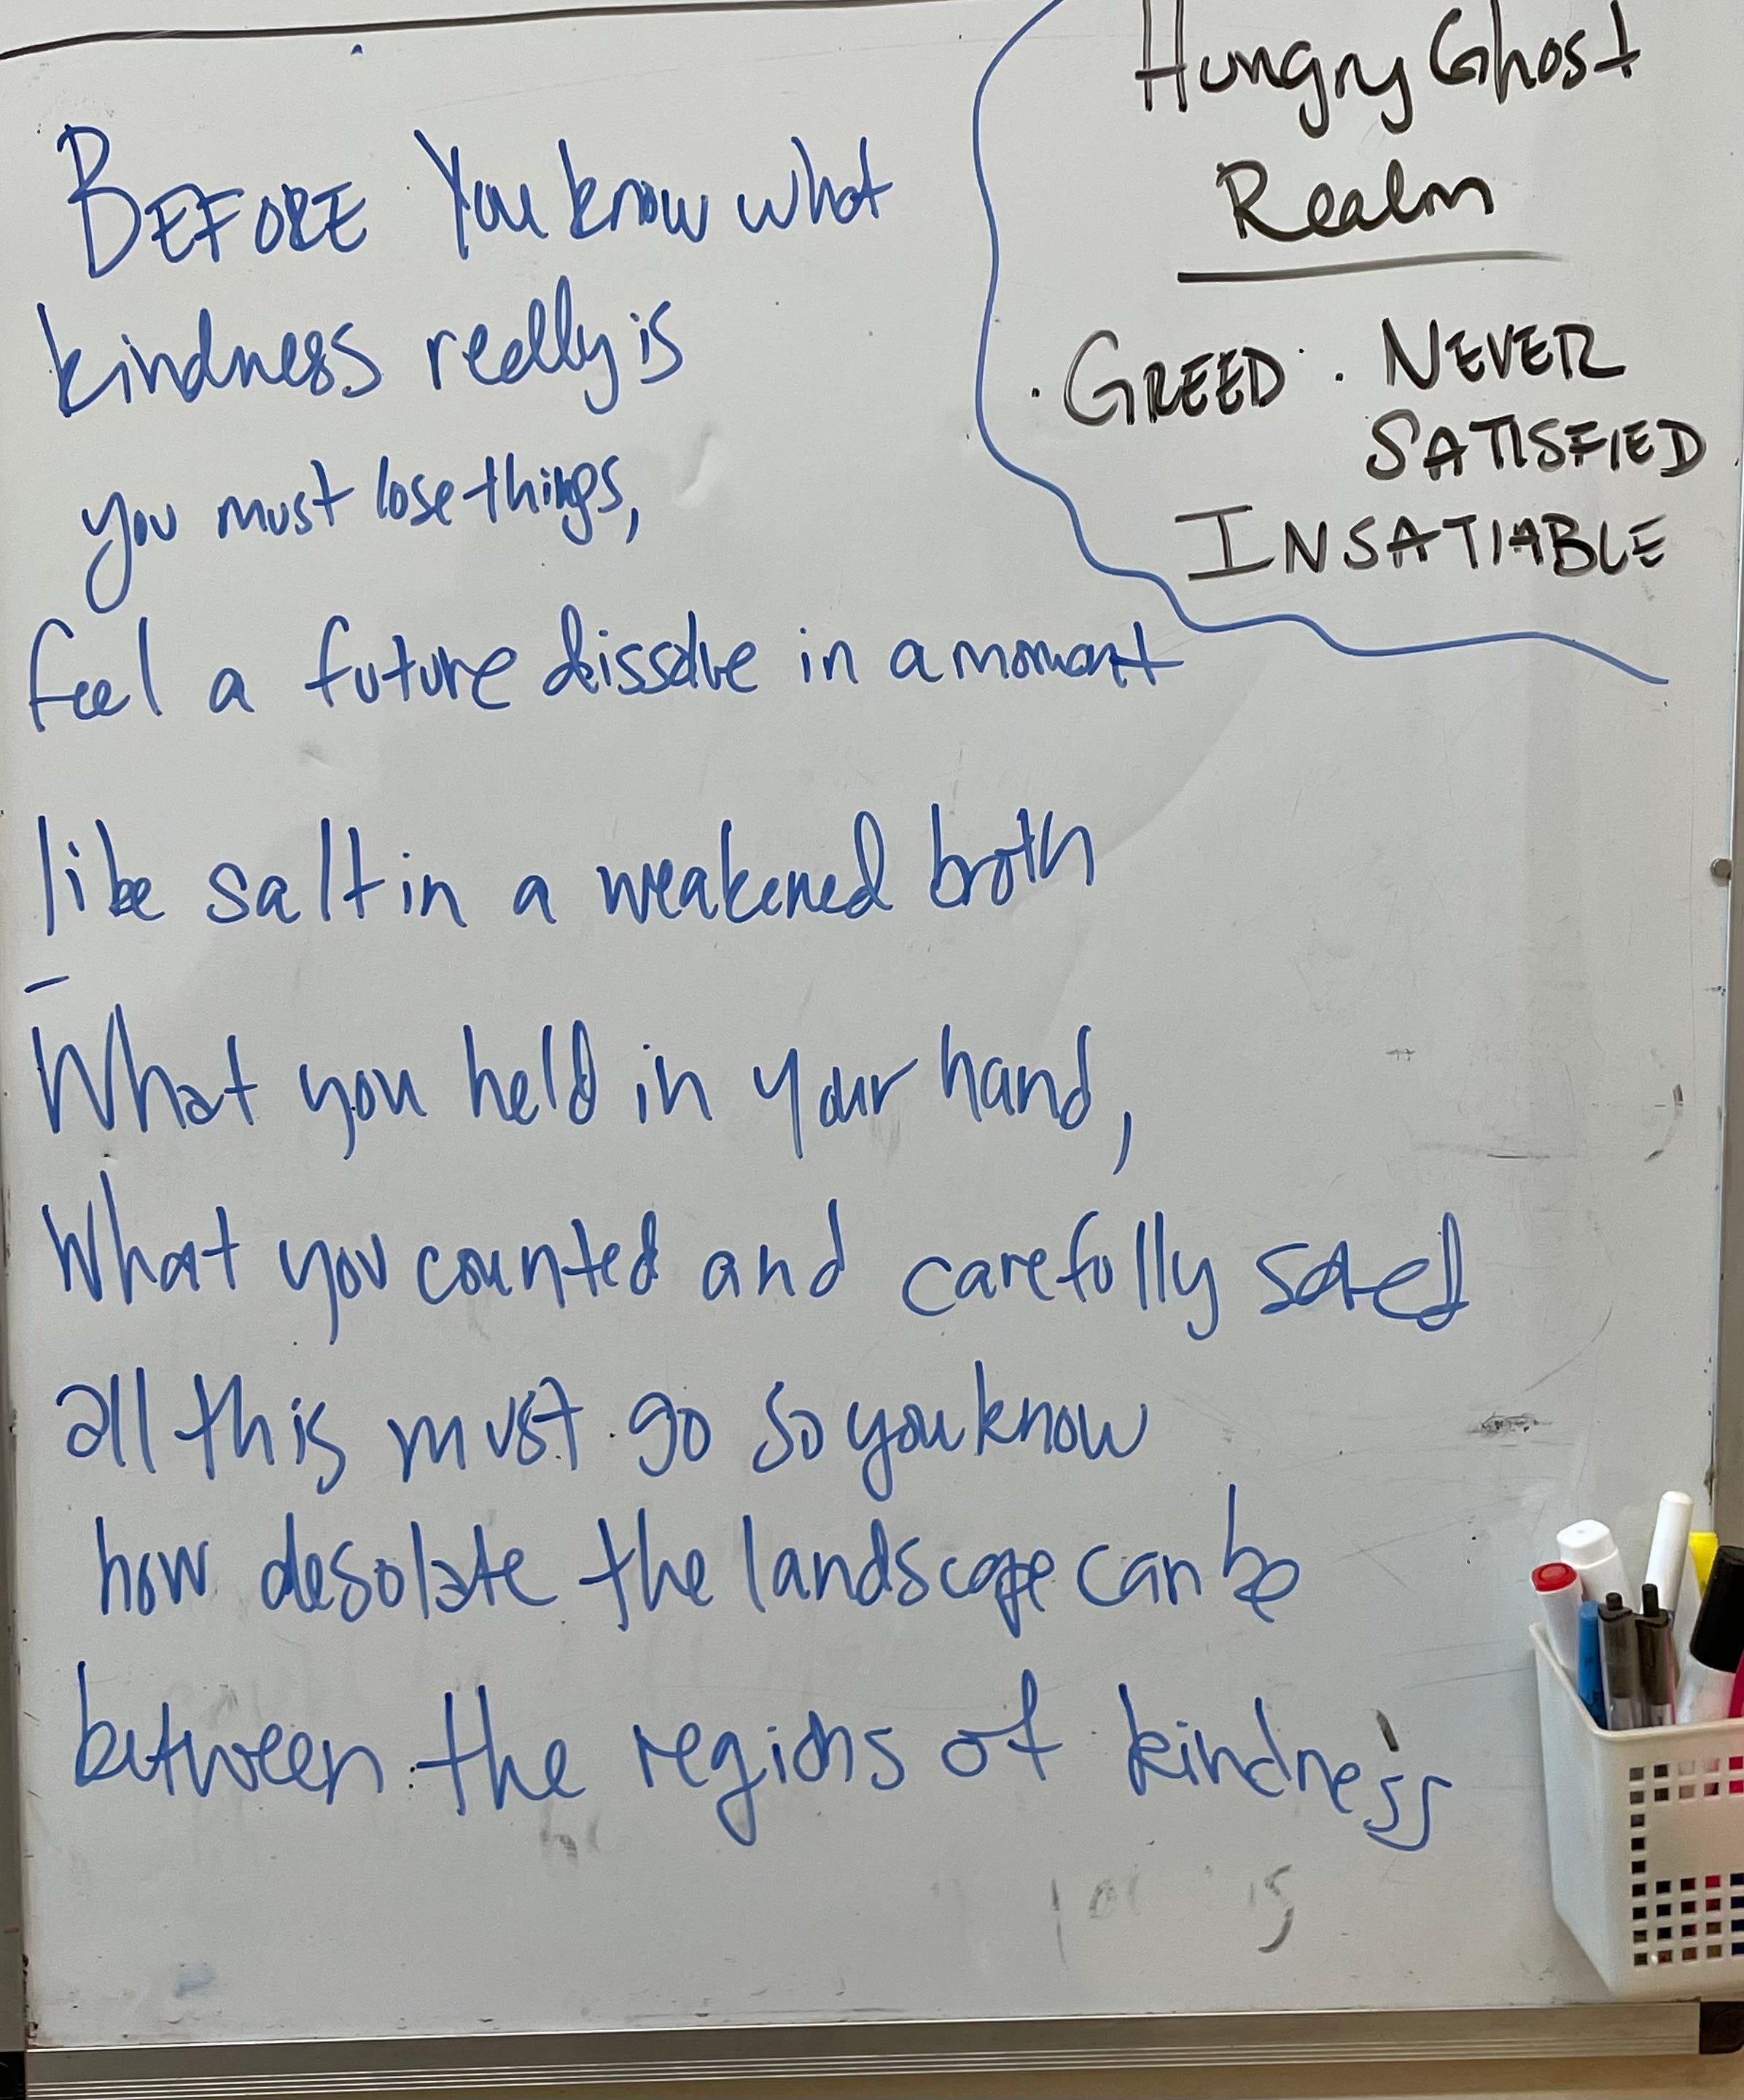 BEFORE You know what
kindness really is
you must lose things,
feel a future dissolve in a moment
like salt in a weakened broth
What you held in your hand,
What you counted and carefully saved
all this must go so you know
how desolate the landscape can be
between the regions of kindness
Hungry Ghost
Realm
· GREED · NEVER
SATISFIED
INSATIABLE